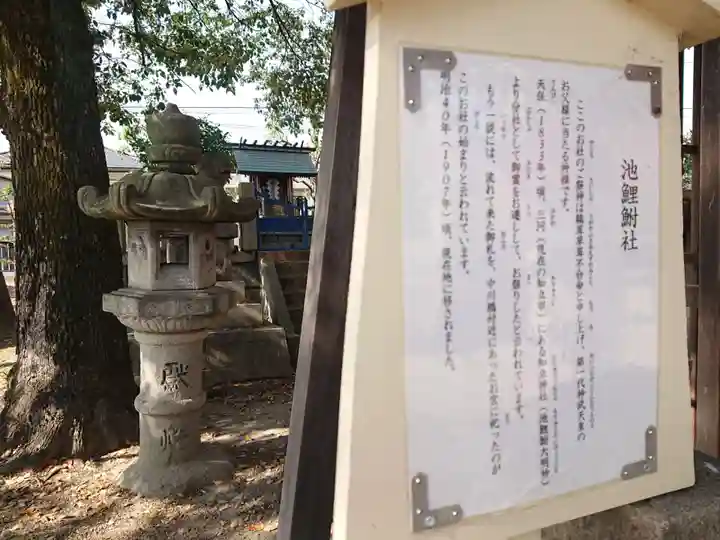 池鯉鮒社
ここのお社のご祭神は鵜葺草葺不合命と申し上げ、第一代神武天皇の
お父様に当たる神様です。
天保(1833年)頃、三河(現在の知立市)にある知立神社(池鯉鮒大明神)
より分社として御霊をお遷しして、お祭りしたと云われています。
もう一説には、流れて来た御札を、中川橋付近にあったお宮に祀ったのが
このお社の始まりと云われています。
明治40年(1907年)頃、現在地に移されました。
献